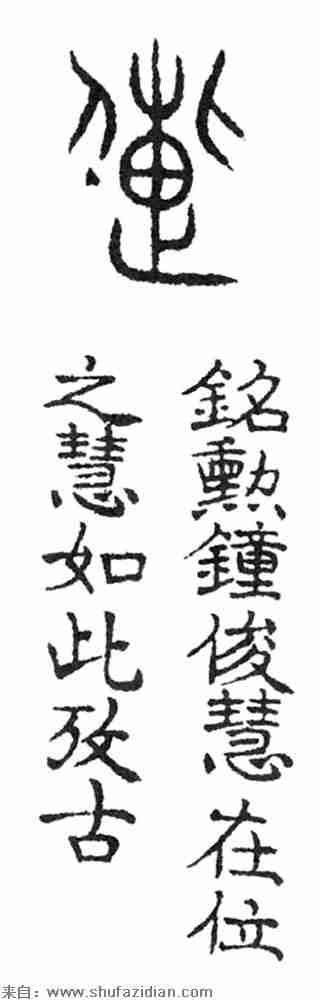 銘勲鐘俊慧在位
之慧如此攷古
来自：www.shufazidian.com